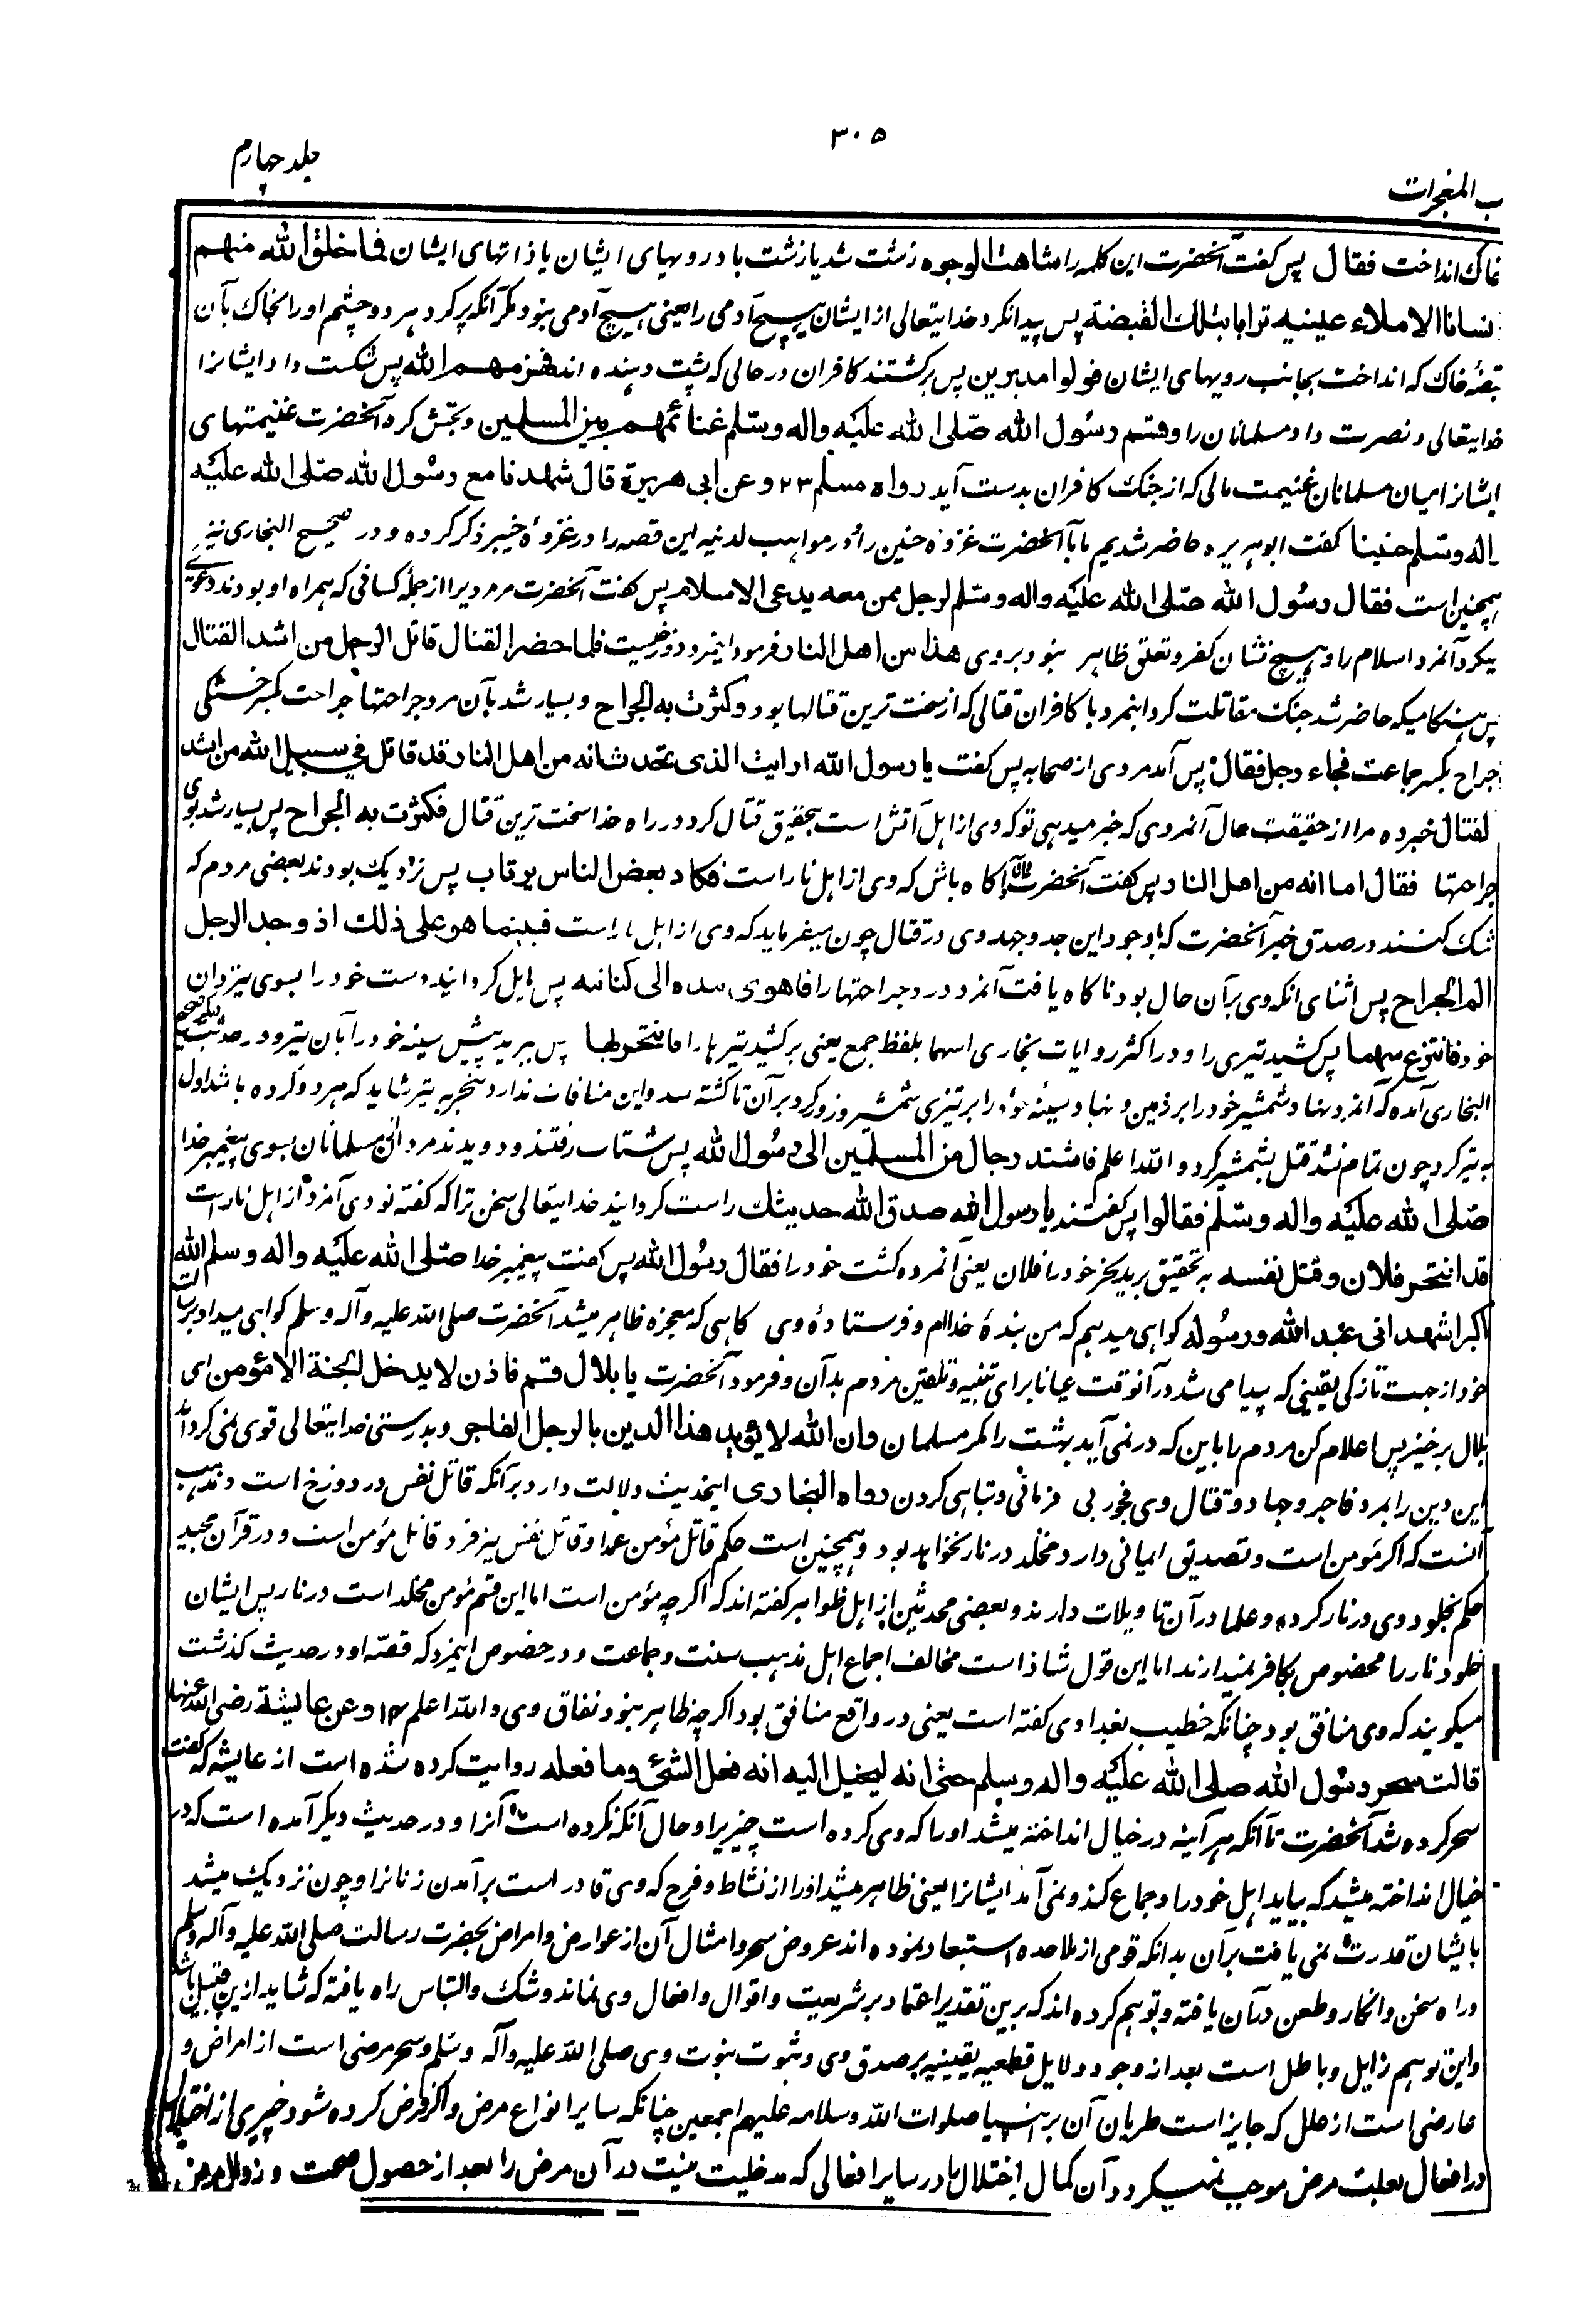 ۳۰۵
جلد چهارم
ب المعجزات
خاک انداخت فقال پس گفت آنحضرت این کلمه را شاهت الوجوه زشت شد یا زشت باد رویهای ایشان یا ذاتهای ایشان فما خلق الله منهم
انسانا الا ملاء عینیه ترابا بتلک القبضة پس پیدا نکرد خدایتعالی از ایشان هیچ آدمی را یعنی هیچ آدمی نبود مگر آنکه پر کرد هر دو چشم او را بخاک بآن
قبضهٔ خاک که انداخت بجانب رویهای ایشان فولوا مدبرین پس برگشتند کافران در حالی که پشت دهنده اند فهزمهم الله پس شکست داد ایشانرا
خدایتعالی و نصرت داد مسلمانان را وقسم رسول الله صلی الله علیه واله وسلم غنائمهم بین المسلمین و بخش کرد آنحضرت غنیمتهای
ایشانرا میان مسلمانان غنیمت مالی که از جنگ کافران بدست آید رواه مسلم ۲۳ و عن ابی هریرة قال شهدنا مع رسول الله صلی الله علیه
واله وسلم حنینا گفت ابو هریره حاضر شدیم ما با آنحضرت غزوه حنین را و در مواهب لدنیه این قصه را در غزوهٔ خیبر ذکر کرده و در صحیح البخاری نیز
همچنین است فقال رسول الله صلی الله علیه واله وسلم لرجل ممن معه یدعی الاسلام پس گفت آنحضرت مر مردیرا از جملهٔ کسانی که همراه او بودند دعوی
میکرد آنمرد اسلام را و هیچ نشان کفر و تعلق ظاهر نبود بر وی هذا من اهل النار فرمود اینمرد دوزخیست فلما حضر القتال قاتل الرجل من اشد القتال
پس هنگامیکه حاضر شد جنگ مقاتلت کرد اینمرد با کافران قتالی که از سخت ترین قتالها بود وکثرت به الجراح و بسیار شد بآن مرد جراحتها جراحت بکسر خستگی
جراح بکسر جماعت فجاء رجل فقال پس آمد مردی از صحابه پس گفت یا رسول الله ارایت الذی تحدث انه من اهل النار قد قاتل فی سبیل الله من اشد
القتال خبر ده مرا از حقیقت حال آنمردی که خبر میدهی تو که وی از اهل آتش است بتحقیق قتال کرد در راه خدا سخت ترین قتال فکثرت به الجراح پس بسیار شد بوی
جراحتها فقال اما انه من اهل النار پس گفت آنحضرت آگاه باش که وی از اهل نار است فکاد بعض الناس یرتاب پس نزدیک بودند بعضی مردم که
شک کنند در صدق خبر آنحضرت که با وجود این جد و جهد وی در قتال چون میفرماید که وی از اهل نار است فبینما هو علی ذلک اذ وجد الرجل
الم الجراح پس اثنای آنکه وی برآن حال بود ناگاه یافت آنمرد درد جراحتها را فاهوی بیده الی کنانته پس مایل گردانید دست خود را بسوی تیردان
خود فانتزع سهما پس کشید تیری را و در اکثر روایات بخاری اسهما بلفظ جمع یعنی برکشید تیرها را فانتحر بها پس ببرید پیش سینه خود را بآن تیر و در حدیث
البخاری آمده که آنمرد نهاد شمشیر خود را بر زمین و نهاد سینهٔ خود را بر تیزی شمشیر و زور کرد برآن تا کشته شد و این منافات ندارد بنحر به تیر شاید که هر دو کرده باشد اول
به تیر کرد چون تمام نشد قتل بشمشیر کرد و الله اعلم فاشتد رجال من المسلمین الی رسول الله پس شتاب رفتند و دویدند مردان مسلمانان بسوی پیغمبر خدا
صلی الله علیه واله وسلم فقالوا پس گفتند یا رسول الله صدق الله حدیثک راست گردانید خدایتعالی سخن ترا که گفته بودی آنمرد از اهل نار است
قد انتحر فلان وقتل نفسه به تحقیق برید نحر خود را فلان یعنی آنمرد و کشت خود را فقال رسول الله پس گفت پیغمبر خدا صلی الله علیه واله وسلم الله
اکبر اشهد انی عبد الله ورسوله گواهی میدهم که من بندهٔ خدا ام و فرستادهٔ وی گاهی که معجزه ظاهر میشد آنحضرت صلی الله علیه وآله وسلم گواهی میداد برسالت
خود از جهت تازگی یقینی که پیدا می شد در آنوقت عیانا برای تنبیه و تلقین مردم بدآن و فرمود آنحضرت یا بلال قم فاذن لا یدخل الجنة الا مؤمن ای
بلال برخیز پس اعلام کن مردم را باین که در نمی آید بهشت را مگر مسلمان وان الله لا یؤید هذا الدین بالرجل الفاجر و بدرستی خدایتعالی قوی نمی گرداند
این دین را بمرد فاجر و جهاد و قتال وی فجور بی فرمانی و تباهی کردن رواه البخاری اینحدیث دلالت دارد برآنکه قاتل نفس در دوزخ است و مذهب
آنست که اگر مؤمن است و تصدیق ایمانی دارد مخلد در نار نخواهد بود و همچنین است حکم قاتل مؤمن عمدا و قاتل نفس نیز فرد قاتل مؤمن است و در قرآن مجید
حکم بخلود وی در نار کرده و علما در آن تاویلات دارند و بعضی محدثین از اهل ظواهر گفته اند که اگرچه مؤمن است اما این قسم مؤمن مخلد است در نار پس ایشان
خلود نار را مخصوص بکافر نمیدارند اما این قول شاذ است مخالف اجماع اهل مذهب سنت و جماعت و در خصوص اینمرد که قصهٔ او در حدیث گذشت
میگویند که وی منافق بود چنانکه خطیب بغدادی گفته است یعنی در واقع منافق بود اگرچه ظاهر نبود نفاق وی و الله اعلم ۱۲ و عن عایشة رضی الله عنها
قالت سحر رسول الله صلی الله علیه واله وسلم حتی انه لیخیل الیه انه فعل الشئ وما فعله روایت کرده شده است از عایشه که گفت
سحر کرده شد آنحضرت تا آنکه هر آینه در خیال انداخته میشد او را که وی کرده است چیزیرا و حال آنکه نکرده است آنرا و در حدیث دیگر آمده است که در
خیال انداخته میشد که بیاید اهل خود را و جماع کند و نمی آمد ایشانرا یعنی ظاهر میشد او را از نشاط و فرح که وی قادر است برآمدن زنانرا و چون نزدیک میشد
بایشان قدرت نمی یافت برآن بدانکه قومی از ملاحده استبعاد نموده اند عروض سحر و امثال آن از عوارض و امراض بحضرت رسالت صلی الله علیه وآله وسلم
و راه سخن و انکار و طعن در آن یافته و توهم کرده اند که برین تقدیر اعتماد بر شریعت و اقوال و افعال وی نماند و شک و التباس راه یافته که شاید ازین قبیل باشد
و این توهم زایل و باطل است بعد از وجود دلایل قطعیه یقینیه بر صدق وی و ثبوت نبوت وی صلی الله علیه وآله وسلم و سحر مرضی است از امراض و
عارضی است از علل که جایز است طریان آن بر انبیا صلوات الله وسلامه علیهم اجمعین چنانکه سایر انواع مرض و اگر فرض کرده شود چیزی از اختلال
در افعال بعلت مرض موجب نمیگردد آن کمال اختلال را در سایر افعالی که مدخلیت نیست در آن مرض را بعد از حصول صحت و زوال مرض